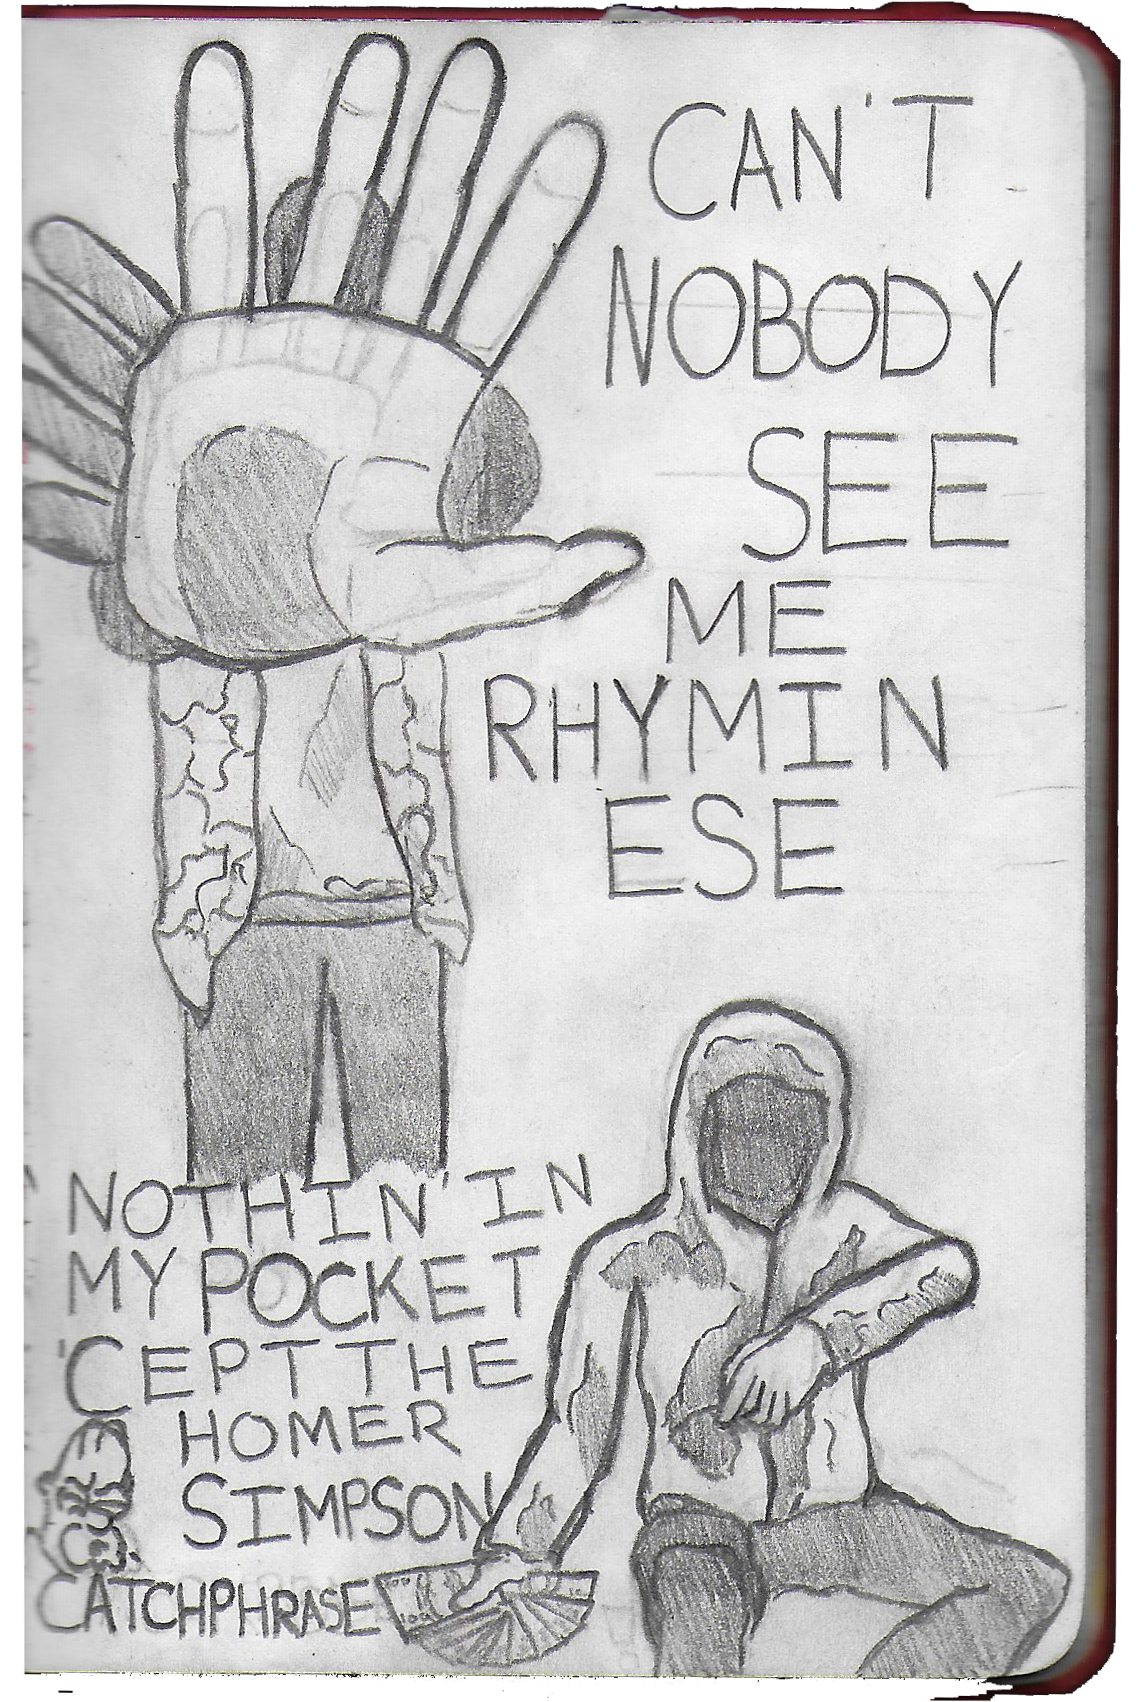 CAN'T
NOBODY
SEE
ME
RHYMIN
ESE
NOTHIN' IN
MY POCKET
'CEPT THE
HOMER
SIMPSON
CATCHPHRASE